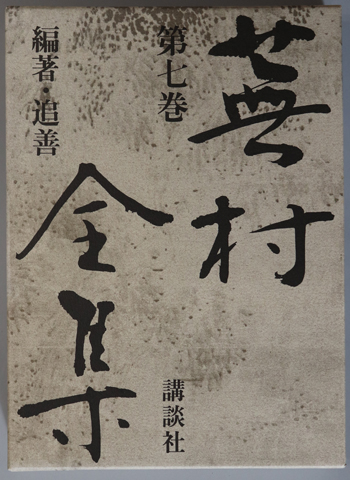 蕪村
全集
第七巻
編著・追善
講談社